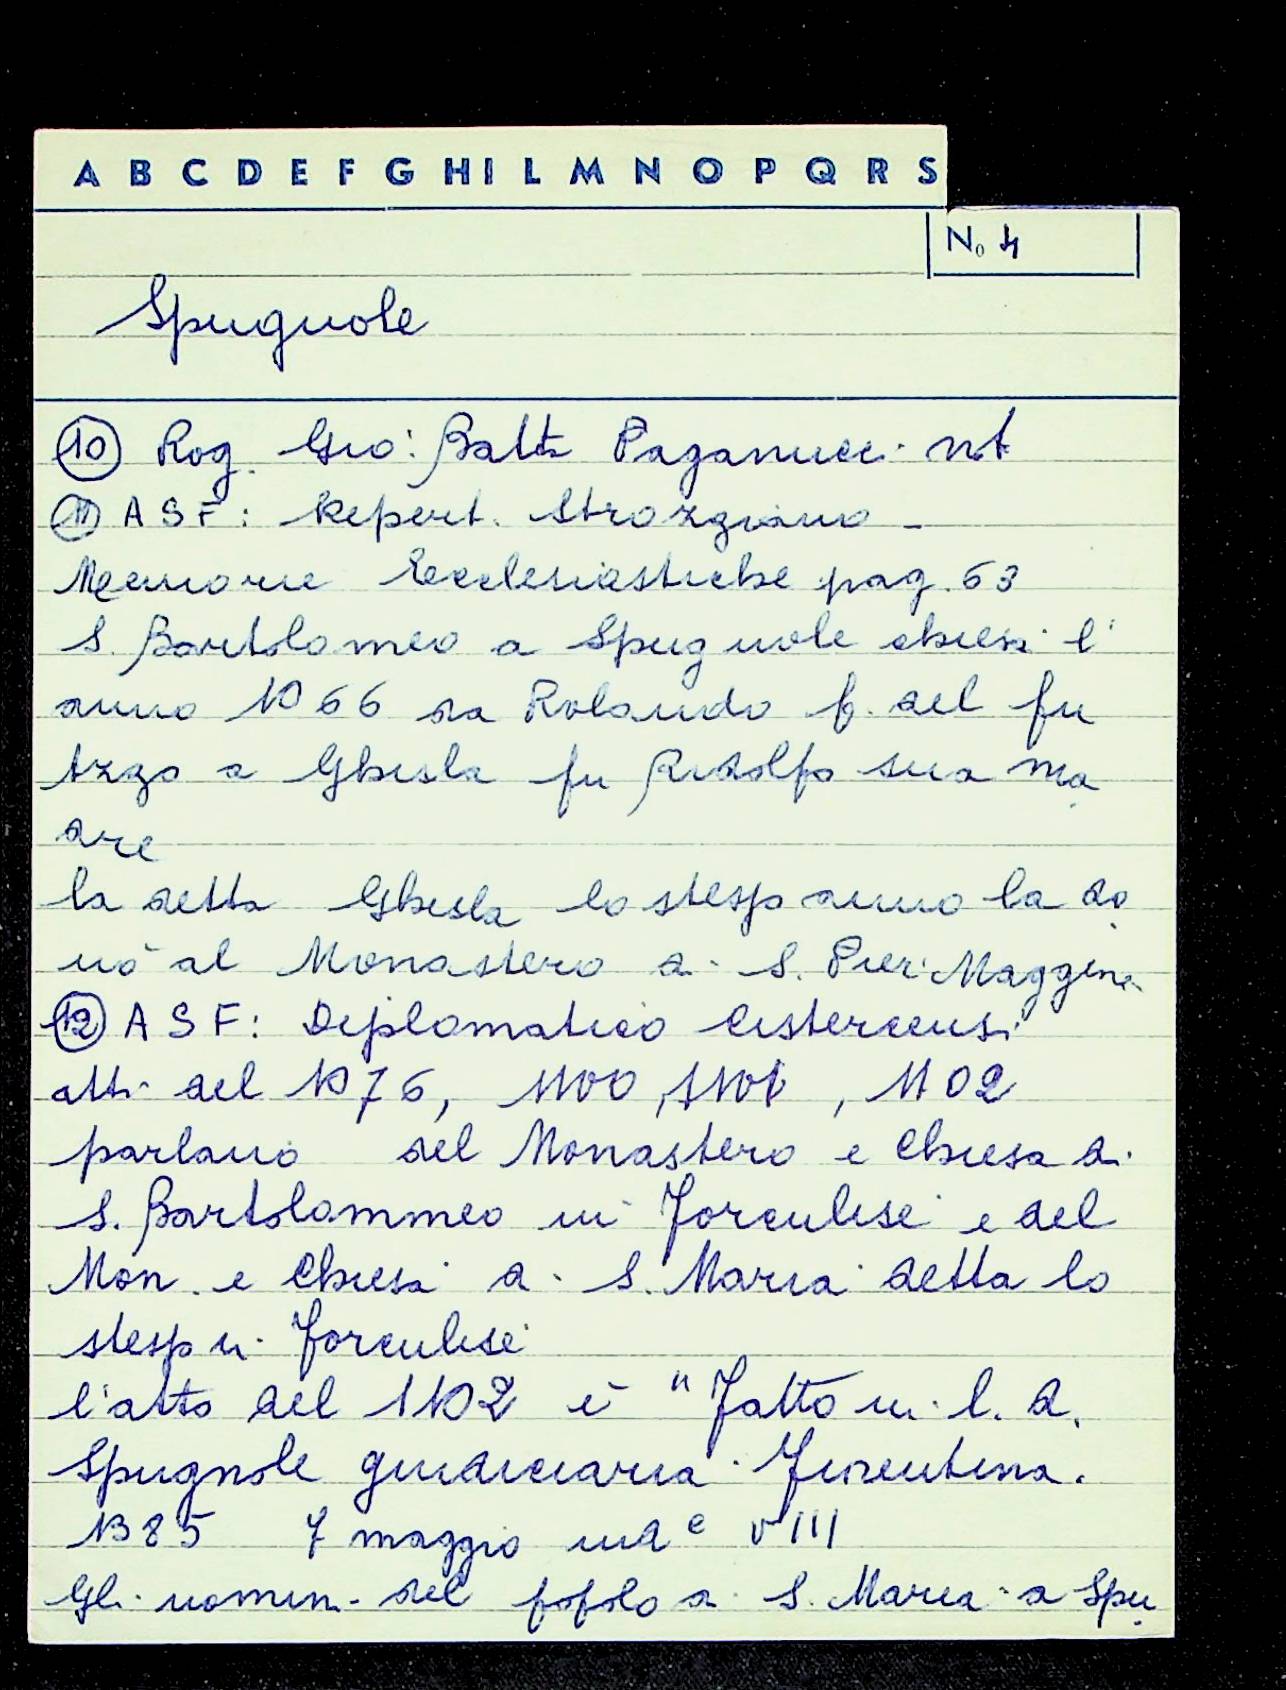 A B C D E F G H I L M N O P Q R S
No 4
Spugnole
(10) Rog. Gio: Batta Paganucci nt
(11) A S F: Repert. Strozziano -
Memorie Ecclesiastiche pag. 63
S. Bartolomeo a Spugnole chiesa l'
anno 1066 da Rolando f. del fu
Azzo a Ghisla fu Ridolfo sua ma
dre
la detta Ghisla lo stesso anno la do
nò al Monastero di S. Pier Maggiore
(12) A S F: Diplomatico Cistercensi
atti del 1076, 1100, 1101, 1102
parlano del Monastero e Chiesa di
S. Bartolommeo in Forculise e del
Mon. e Chiesa di S. Maria detta lo
stesso in Forculise
l'atto del 1102 è "Fatto in l. d.
Spugnole giudiciaria Fiorentina.
1385 7 maggio ind e VIII
Gli uomini del popolo di S. Maria a Spu